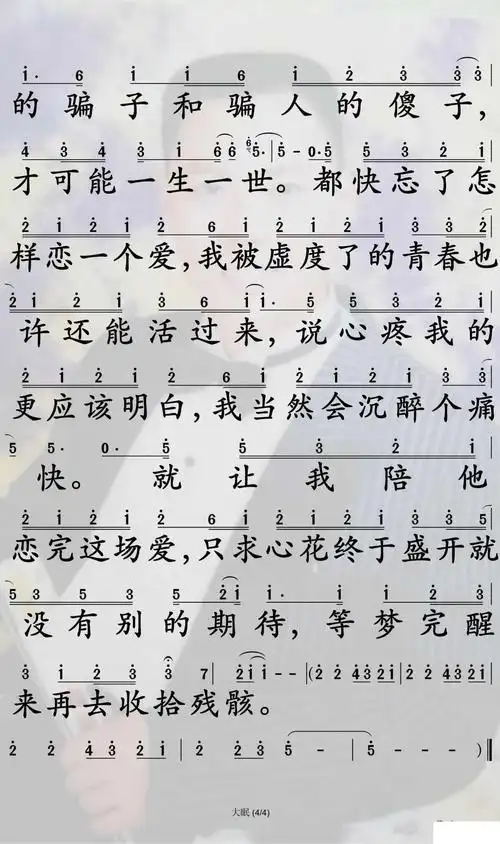 i· 6 i i 6 i 2 3 3 3
的骗子和骗人的傻子,
4 3 4 3 i 6 6 5· 5 - 0· 5 5 3 2 i
才可能一生一世。都快忘了怎
2 i 2 i 2 6 i 2 i 2 i 3 3 2
样恋一个爱,我被虚度了的青春也
2 i 2 i 3 6 i i· 5 5 3 2 i
许还能活过来,说心疼我的
2 i 2 i 2 6 i 2 i 2 i 3 3
更应该明白,我当然会沉醉个痛
5 5· 0· 5 5 3 2 i
快。就让我陪他
2 i 2 i 2 6 i 2 i 2 i 3 3 5
恋完这场爱,只求心花终于盛开就
5 3 5 3 5 2 i i· i i 2 3
没有别的期待,等梦完醒
3 i 2 3 3 7 2 i i - - (2 2 4 3 2 i 2 2 4 3 2 i
来再去收拾残骸。
2 2 4 3 2 i 2 2 3 2 5 - 5 - - )
大眠 (4/4)